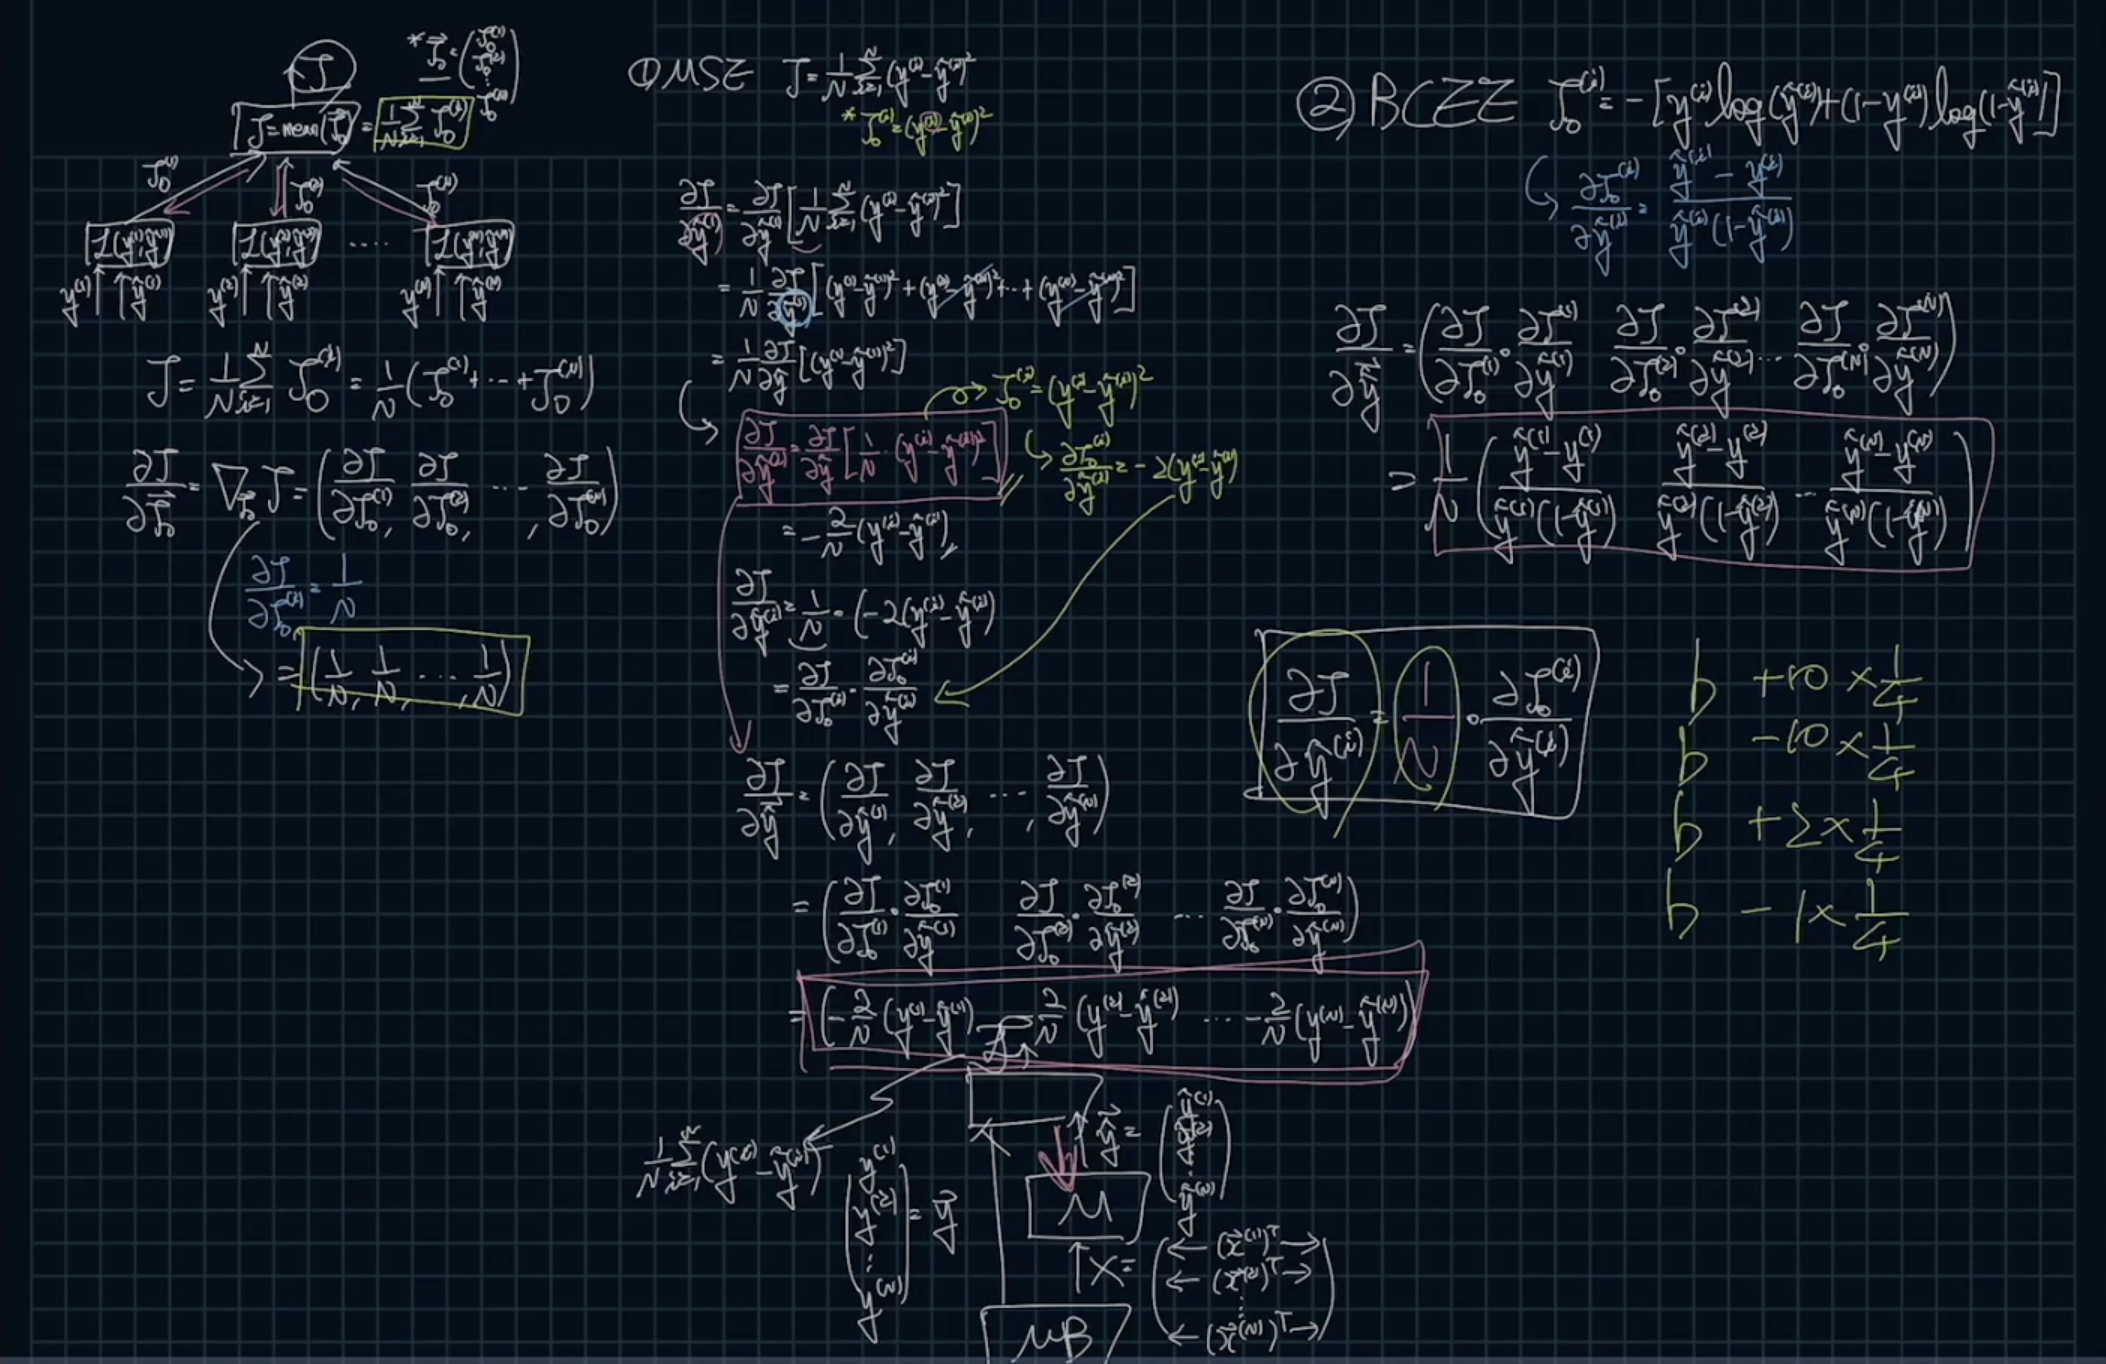 J
* \vec{J_0} = (J_0^{(1)} J_0^{(2)} ⋮ J_0^{(N)})
J = mean(\vec{J_0}) = \frac{1}{N} \sum_{i=1}^{N} J_0^{(i)}
J_0^{(1)} J_0^{(2)} J_0^{(N)}
L(y^{(1)}, ŷ^{(1)}) L(y^{(2)}, ŷ^{(2)}) .... L(y^{(N)}, ŷ^{(N)})
y^{(1)} ŷ^{(1)} y^{(2)} ŷ^{(2)} y^{(N)} ŷ^{(N)}
J = \frac{1}{N} \sum_{i=1}^{N} J_0^{(i)} = \frac{1}{N} (J_0^{(1)} + ⋯ + J_0^{(N)})
\frac{∂J}{∂\vec{J_0}} = ∇_{\vec{J_0}} J = (\frac{∂J}{∂J_0^{(1)}}, \frac{∂J}{∂J_0^{(2)}}, ⋯, \frac{∂J}{∂J_0^{(N)}})
\frac{∂J}{∂J_0^{(i)}} = \frac{1}{N}
= (\frac{1}{N}, \frac{1}{N}, ⋯, \frac{1}{N})
① MSE J = \frac{1}{N} \sum_{i=1}^{N} (y^{(i)} - ŷ^{(i)})^2
* J_0^{(i)} = (y^{(i)} - ŷ^{(i)})^2
\frac{∂J}{∂ŷ^{(1)}} = \frac{∂J}{∂ŷ^{(1)}} [\frac{1}{N} \sum_{i=1}^{N} (y^{(i)} - ŷ^{(i)})^2]
= \frac{1}{N} \frac{∂J}{∂ŷ^{(1)}} [(y^{(1)} - ŷ^{(1)})^2 + (y^{(2)} - ŷ^{(2)})^2 + ⋯ + (y^{(N)} - ŷ^{(N)})^2]
= \frac{1}{N} \frac{∂J}{∂ŷ} [(y^{(1)} - ŷ^{(1)})^2]
\frac{∂J}{∂ŷ^{(i)}} = \frac{∂J}{∂ŷ} [\frac{1}{N} · (y^{(i)} - ŷ^{(i)})^2]
J_0^{(i)} = (y^{(i)} - ŷ^{(i)})^2
\frac{∂J_0^{(i)}}{∂ŷ^{(i)}} = -2(y^{(i)} - ŷ^{(i)})
= -\frac{2}{N} (y^{(i)} - ŷ^{(i)})
\frac{∂J}{∂ŷ^{(i)}} = \frac{1}{N} · (-2(y^{(i)} - ŷ^{(i)})
= \frac{∂J}{∂J_0^{(i)}} · \frac{∂J_0^{(i)}}{∂ŷ^{(i)}}
\frac{∂J}{∂\vec{ŷ}} = (\frac{∂J}{∂ŷ^{(1)}}, \frac{∂J}{∂ŷ^{(2)}}, ⋯, \frac{∂J}{∂ŷ^{(N)}})
= (\frac{∂J}{∂J_0^{(1)}} · \frac{∂J_0^{(1)}}{∂ŷ^{(1)}} \frac{∂J}{∂J_0^{(2)}} · \frac{∂J_0^{(2)}}{∂ŷ^{(2)}} ⋯ \frac{∂J}{∂J_0^{(N)}} · \frac{∂J_0^{(N)}}{∂ŷ^{(N)}})
= (-\frac{2}{N} (y^{(1)} - ŷ^{(1)}) -\frac{2}{N} (y^{(2)} - ŷ^{(2)}) ⋯ -\frac{2}{N} (y^{(N)} - ŷ^{(N)}))
J
\frac{1}{N} \sum_{i=1}^{N} (y^{(i)} - ŷ^{(i)})^2
(y^{(1)} y^{(2)} ⋮ y^{(N)}) = \vec{y}
\vec{ŷ} = (ŷ^{(1)} ŷ^{(2)} ⋮ ŷ^{(N)})
M
X = (← (\vec{x}^{(1)})^T → ← (\vec{x}^{(2)})^T → ⋮ ← (\vec{x}^{(N)})^T →)
MB
② BCEE J_0^{(i)} = -[y^{(i)} log(ŷ^{(i)}) + (1-y^{(i)}) log(1-ŷ^{(i)})]
\frac{∂J_0^{(i)}}{∂ŷ^{(i)}} = \frac{ŷ^{(i)} - y^{(i)}}{ŷ^{(i)}(1-ŷ^{(i)})}
\frac{∂J}{∂\vec{ŷ}} = (\frac{∂J}{∂J_0^{(1)}} · \frac{∂J_0^{(1)}}{∂ŷ^{(1)}} \frac{∂J}{∂J_0^{(2)}} · \frac{∂J_0^{(2)}}{∂ŷ^{(2)}} ⋯ \frac{∂J}{∂J_0^{(N)}} · \frac{∂J_0^{(N)}}{∂ŷ^{(N)}})
= \frac{1}{N} (\frac{ŷ^{(1)} - y^{(1)}}{ŷ^{(1)}(1-ŷ^{(1)})} \frac{ŷ^{(2)} - y^{(2)}}{ŷ^{(2)}(1-ŷ^{(2)})} ⋯ \frac{ŷ^{(N)} - y^{(N)}}{ŷ^{(N)}(1-ŷ^{(N)})})
\frac{∂J}{∂ŷ^{(i)}} = \frac{1}{N} · \frac{∂J_0^{(i)}}{∂ŷ^{(i)}}
b +10 × \frac{1}{4}
b -10 × \frac{1}{4}
b +2 × \frac{1}{4}
b -1 × \frac{1}{4}